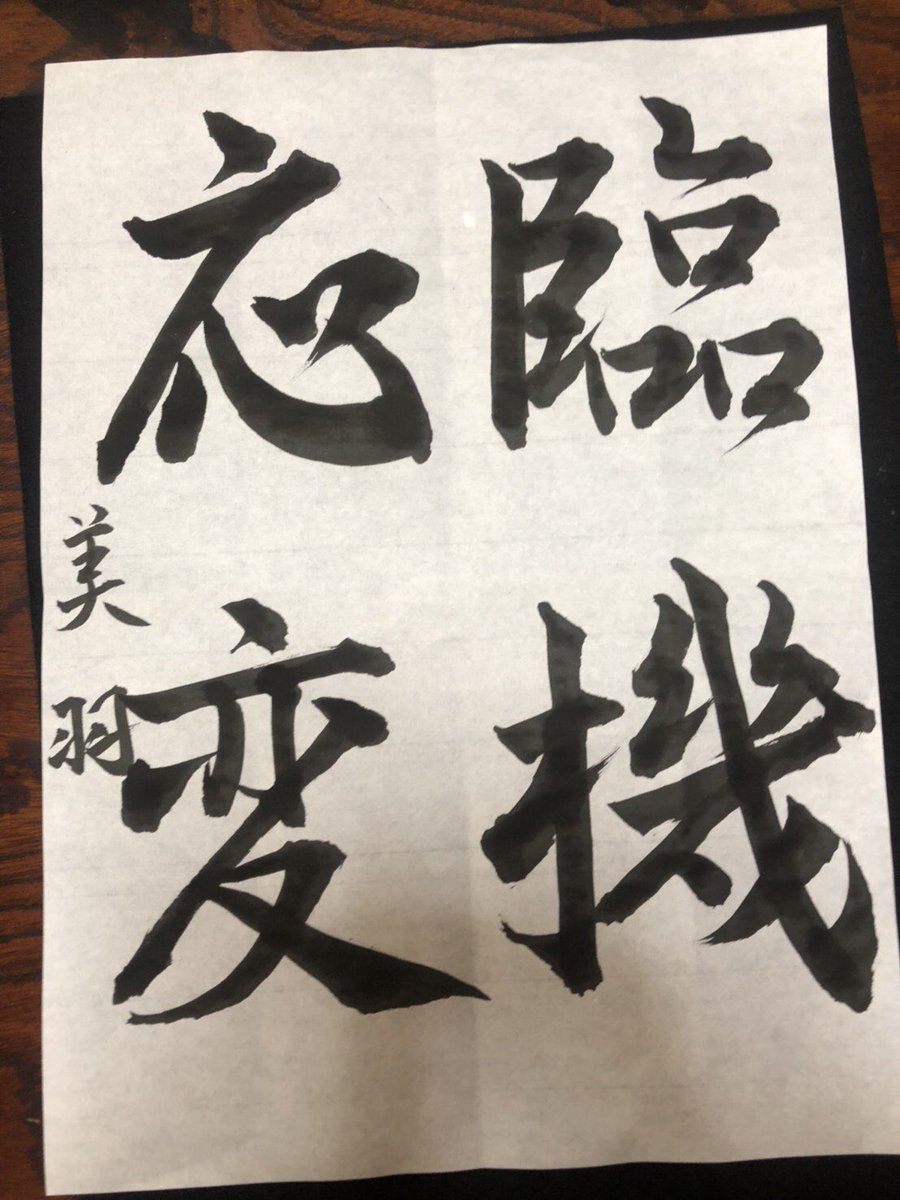 臨機
応変
美羽